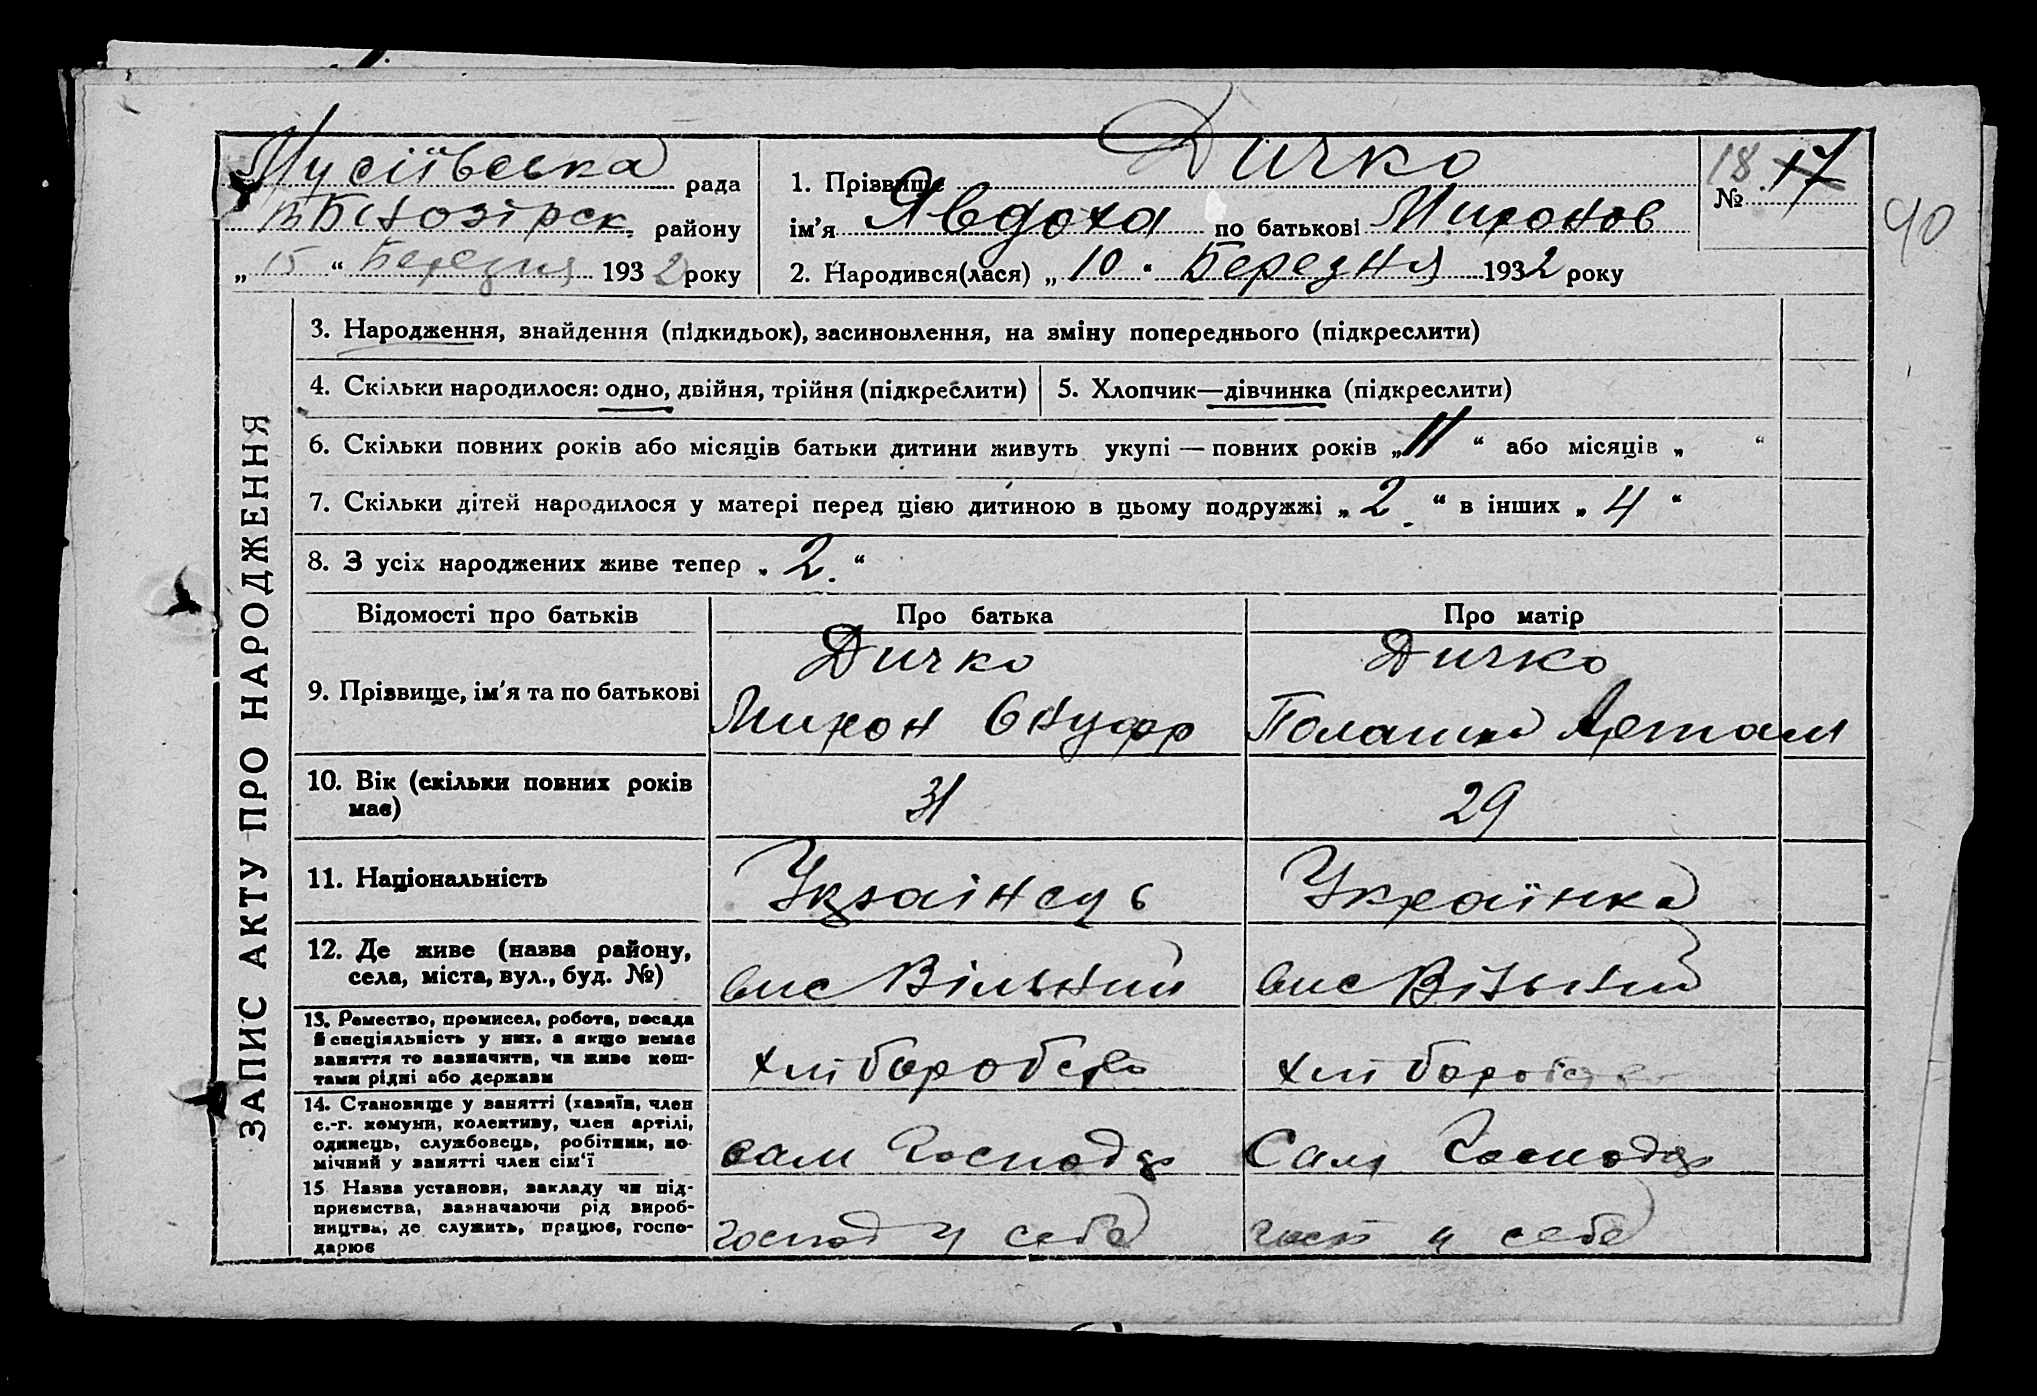 Мусіївська рада
В Білозірск. району
„ 15 “ Березня 1932 року
1. Прізвище Дичко
ім'я Явдоха по батькові Миронов
2. Народився(лася) „ 10 “ Березня 1932 року
18 17
№
40
ЗАПИС АКТУ ПРО НАРОДЖЕННЯ
3. Народження, знайдення (підкидьок), засиновлення, на зміну попереднього (підкреслити)
4. Скільки народилося: одно, двійня, трійня (підкреслити)
5. Хлопчик—дівчинка (підкреслити)
6. Скільки повних років або місяців батьки дитини живуть укупі — повних років „ 11 “ або місяців „ “
7. Скільки дітей народилося у матері перед цією дитиною в цьому подружжі „ 2. “ в інших „ 4 “
8. З усіх народжених живе тепер „ 2. “
Відомості про батьків
Про батька
Про матір
9. Прізвище, ім'я та по батькові
Дичко
Мирон Онуфр
Дичко
Полашка Артам
10. Вік (скільки повних років
має)
31
29
11. Національність
Українець
Українка
12. Де живе (назва району,
села, міста, вул., буд. №)
вис Вільний
вис Вільний
13. Ремество, промисел, робота, посада
й спеціяльність у них, а якщо немає
заняття то зазначити, чи живе кош-
тами рідні або держави
хліборобство
14. Становище у занятті (хазяїн, член
с.-г. комуни, колективу, член артілі,
одинець, службовець, робітник, по-
мічний у занятті член сім'ї
сам Господар
Сама Господар
15 Назва установи, закладу чи під-
приємства, зазначаючи рід вироб-
ництва, де служить, працює, госпо-
дарює
господ у себе
у себе